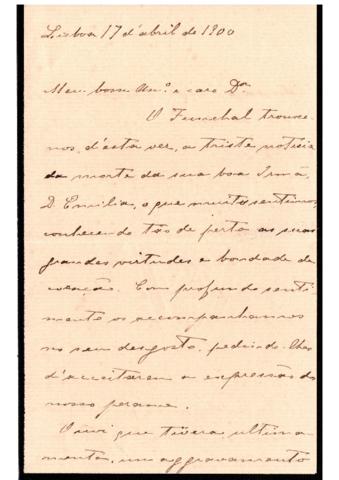 Lisboa 17 d'abril de 1900
Meu bom Am.º e caro Dr.
O Funchal trouxe-
nos, d'esta vez, a triste noticia
da morte da sua boa Irmã,
D. Emilia, o que muito sentimos,
conhecendo tão de perto as suas
grandes virtudes e bondade de
coração. Com profundo senti-
mento os acompanhamos
no seu desgosto, pedindo-lhes
d'acceitarem a expressão do
nosso pezame.
Ouvi que tivera ultima-
mente, um aggravamento